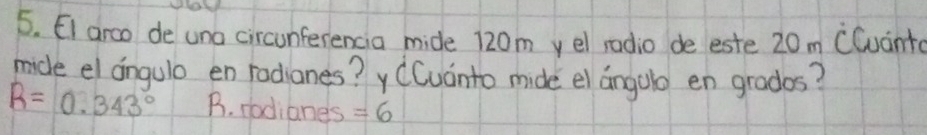 5. El arco de una circunferencia mide 120m y el radio de este 20m ¿Cuánto
mide el ángulo en radianes? y ¿Cuánto mide el ángulo en grados?
R= 0.343° R. radianes = 6